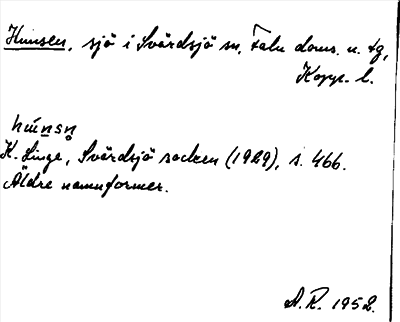 Hinsen, sjö i Svärdsjö sn, Falu doms. n. tg,
Kopp. l.
hinsn̥
K. Linge, Svärdsjö socken (1929), s. 466.
Äldre namnformer.
A. R. 1952.